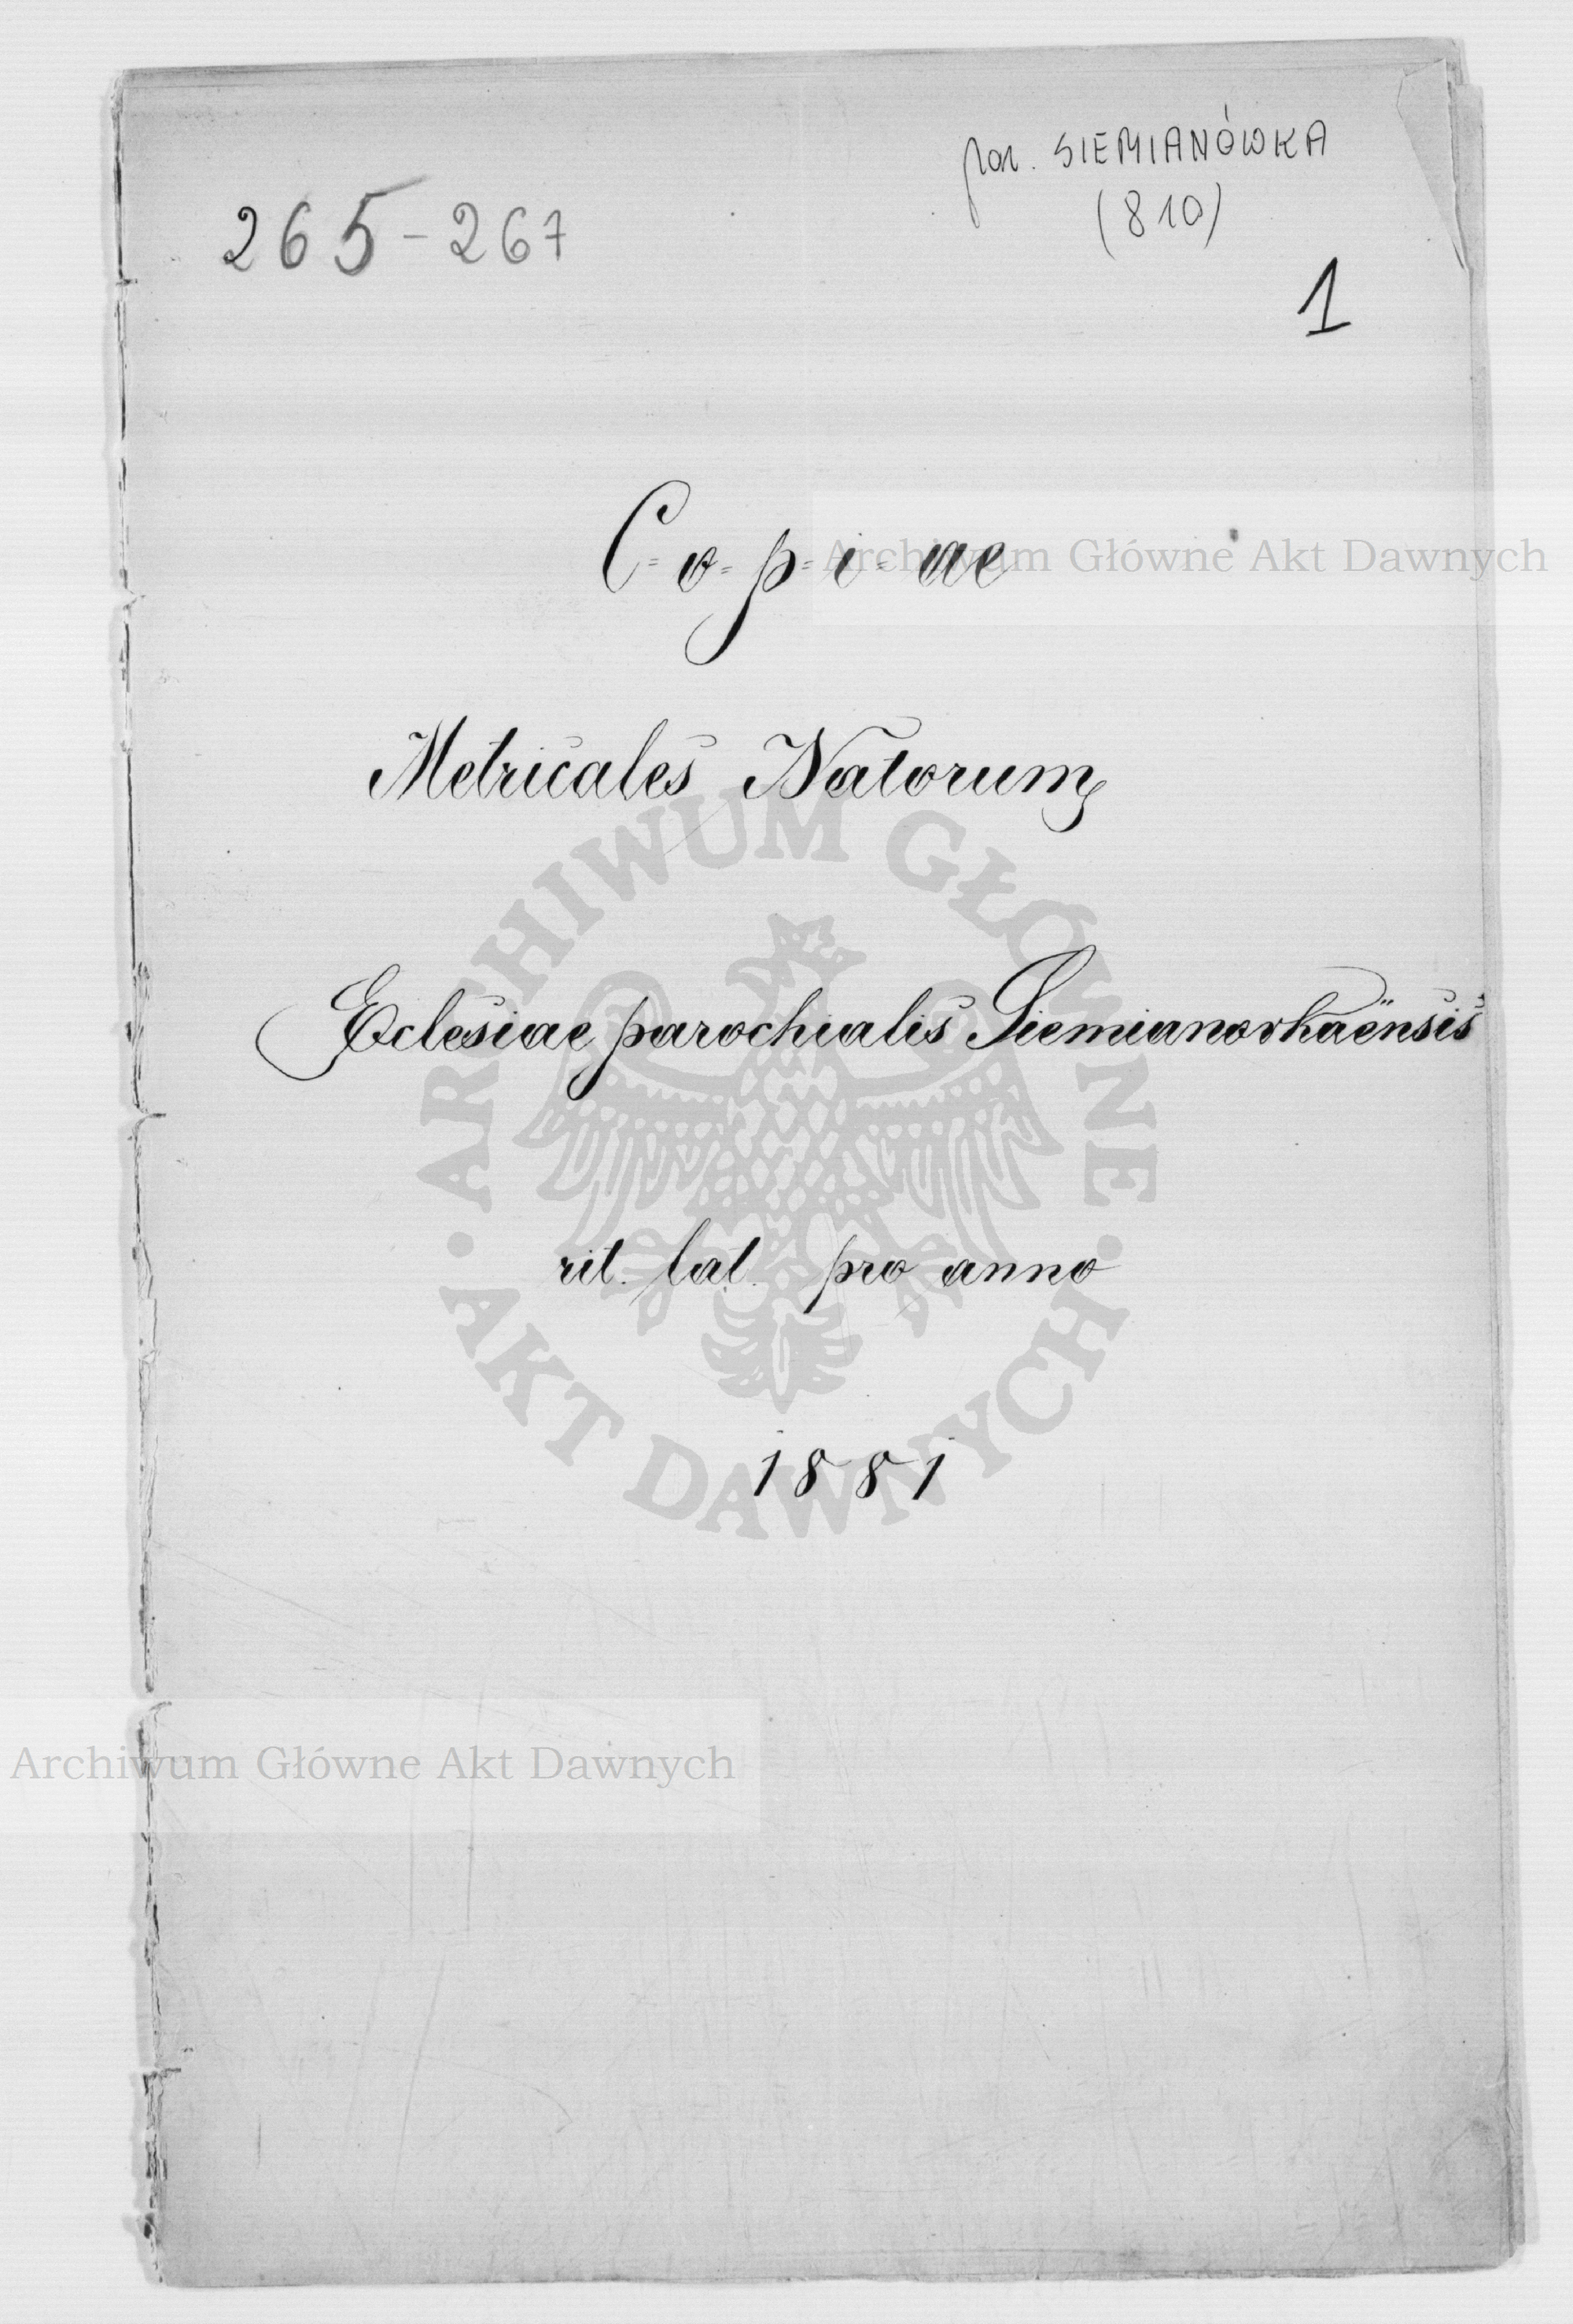 par. SIEMIANÓWKA
265-267
(810)
1
C=o=p=i=ae
Archiwum Główne Akt Dawnych
Metricales Natorum
Eclesiae parochialis Siemianovkaënsis
rit. lat. pro anno
1881
ARCHIWUM GŁÓWNE · AKT DAWNYCH ·
Archiwum Główne Akt Dawnych